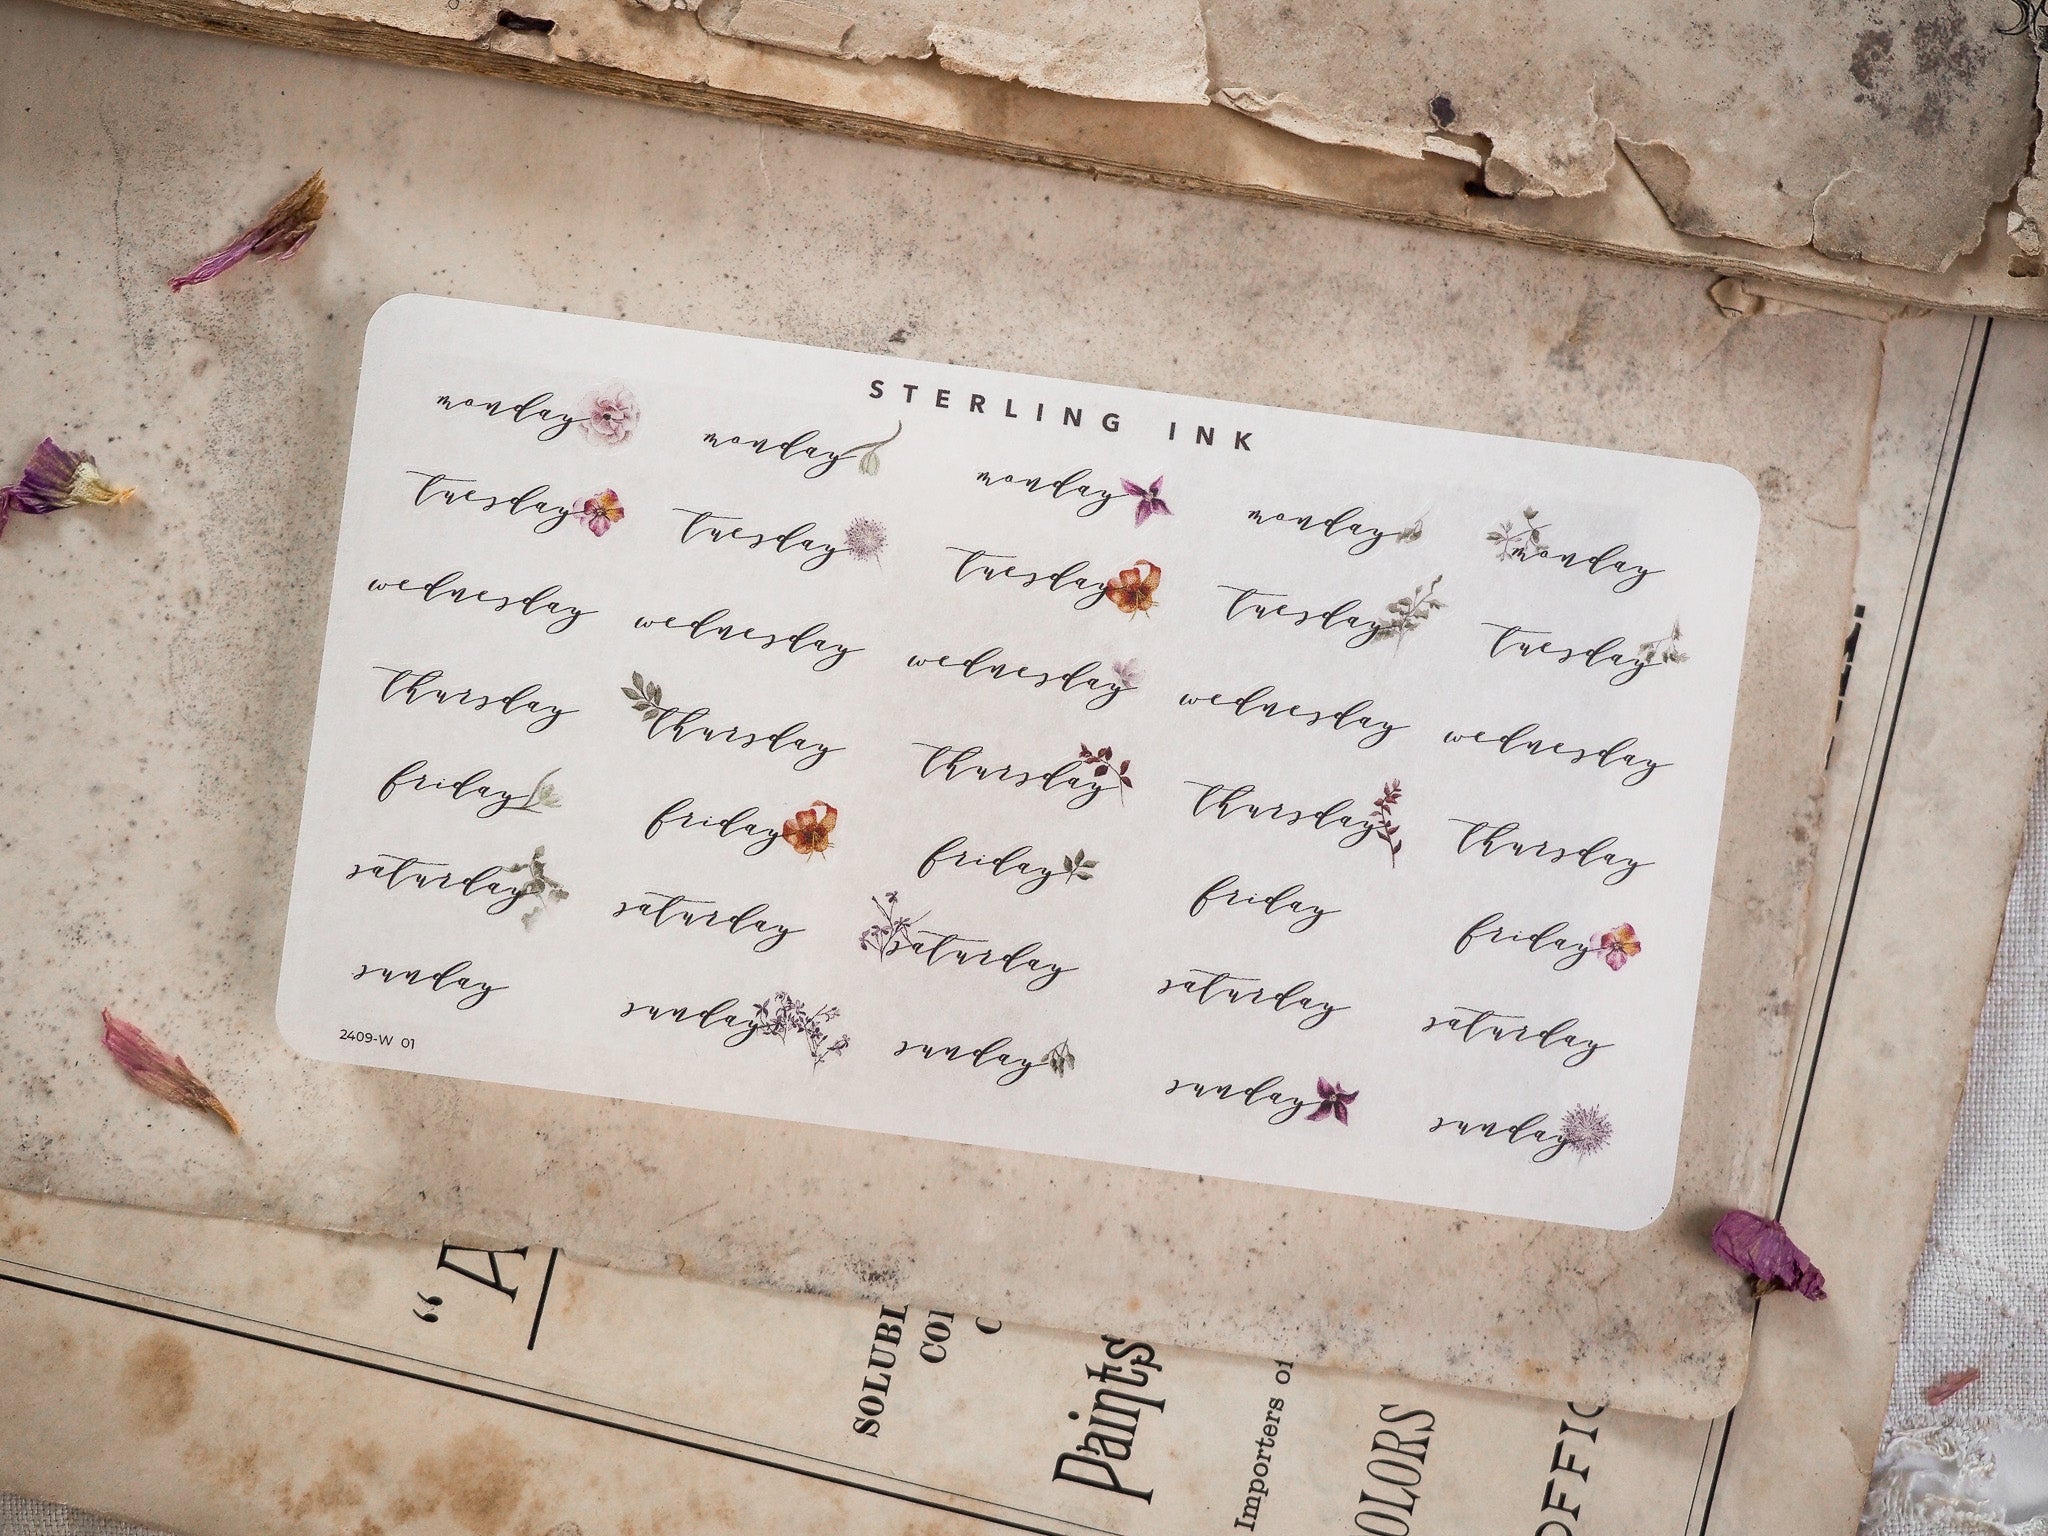 STERLING INK
monday monday monday monday monday
tuesday tuesday tuesday tuesday tuesday
wednesday wednesday wednesday wednesday wednesday
thursday thursday thursday thursday thursday
friday friday friday friday friday
saturday saturday saturday saturday saturday
sunday sunday sunday sunday sunday
2409-W 01
"A
SOLUBL
CO
Paints
Importers of
OLORS
OFFIC